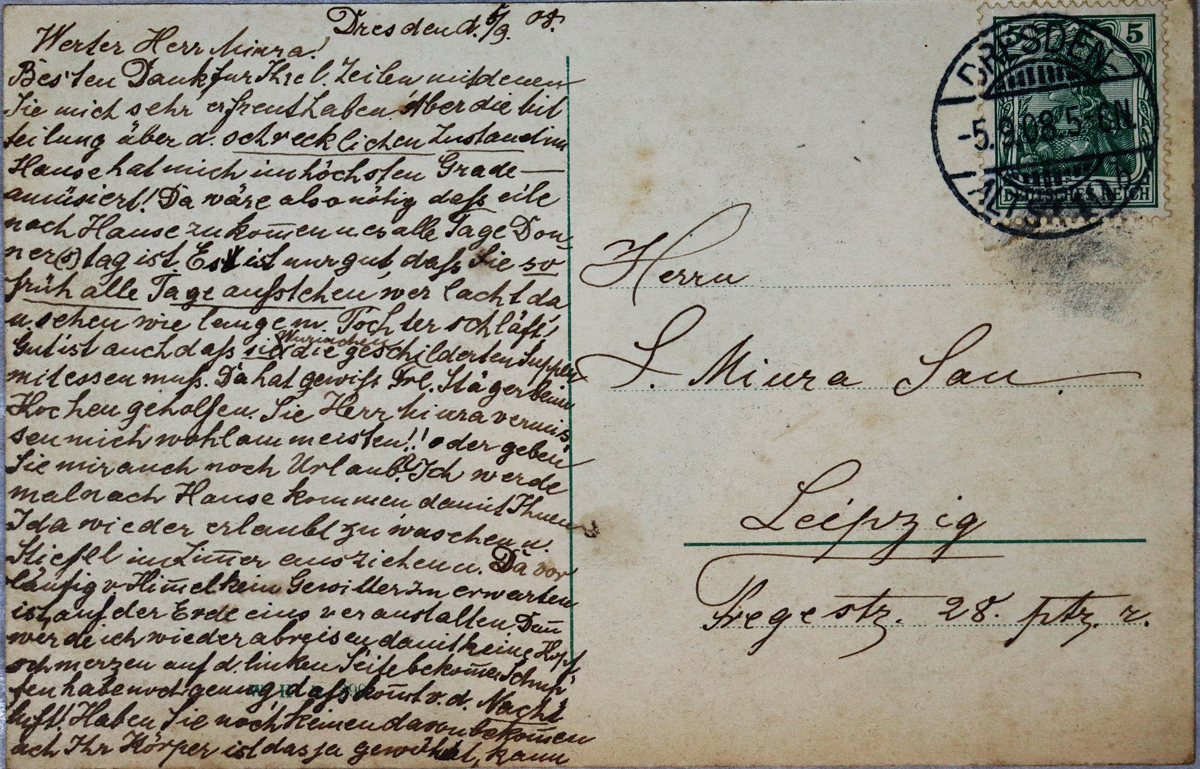 Dresden d. 5/9. 08.
Werter Herr Miura!
Besten Dank für Ihre l. Zeilen mit denen
Sie mich sehr erfreut haben. Aber die Mit
teilung über d. schrecklichen Zustand im
Hause hat mich im höchsten Grade
amüsiert! Da wäre also nötig daß eile
nach Hause zu kom̅en u. es alle Tage Don
ner(s)tag ist Es ist nur gut daß Sie so
früh alle Tage aufstehen, wer lacht da
u. sehen wie lange m. Tochter schläft,
Gut ist auch daß sie die geschilderten Suppen
mitessen muß. Da hat gewiß Frl. Stäger beim
Kochen geholfen. Sie Herr Miura vermis
sen mich wohl am meisten!! oder geben
Sie mir auch noch Urlaub? Ich werde
mal nach Hause kommen damit Ihnen
Ida wieder erlaubt zu waschen u.
Stiefel im Zim̅er ausziehen u. Da vor
läufig v. Him̅el kein Gewitter zu erwarten
ist, auf der Erde eins veranstalten Dan̅
werde ich wieder abreisen damit keine Kopf
schmerzen auf d. linken Seite bekom̅e. Schnup
fen habe noch genug, daß kom̅t v. d. Nacht
luft! Haben Sie noch keinen davon bekom̅en
ach Ihr Körper ist das ja gewöhnt, kann
DRESDEN
-5.9.08.5-6N.
ALTSTADT
5
DEUTSCHES REICH
Herrn
S. Miura San.
Leipzig
Fregestr. 28. ptr. r.